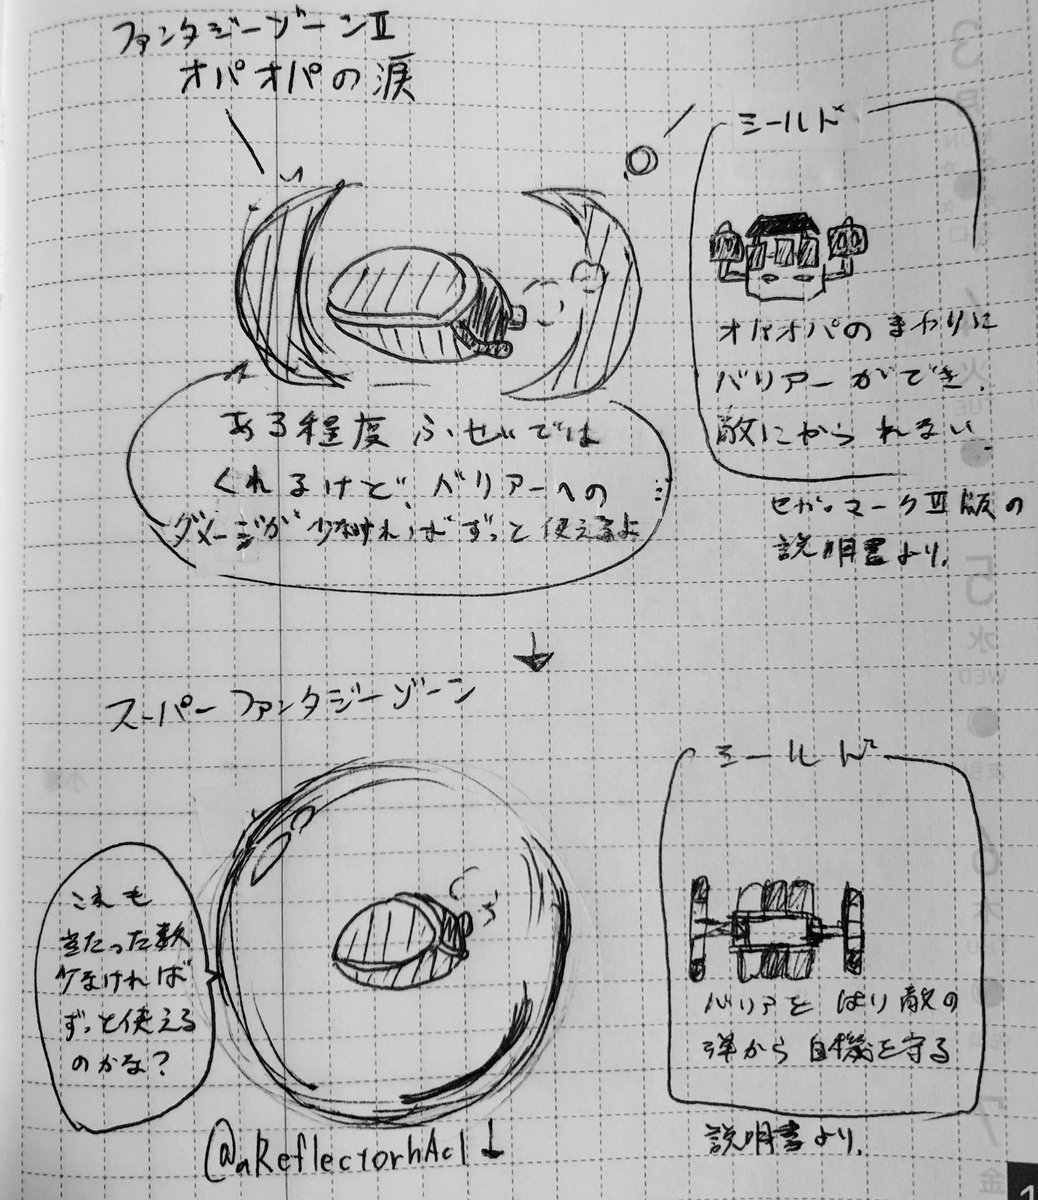 ファンタジーゾーンⅡ
オパオパの涙
シールド
オパオパのまわりに
バリアーができ、
敵にやられない。
セガ・マークⅢ版の
説明書より。
ある程度ふせいでは
くれるけど、バリアーへの
ダメージが少なければずっと使えるよ
スーパーファンタジーゾーン
シールド
バリアをはり敵の
弾から自機を守る
説明書より。
これも
当たった数
少なければ
ずっと使える
のかな?